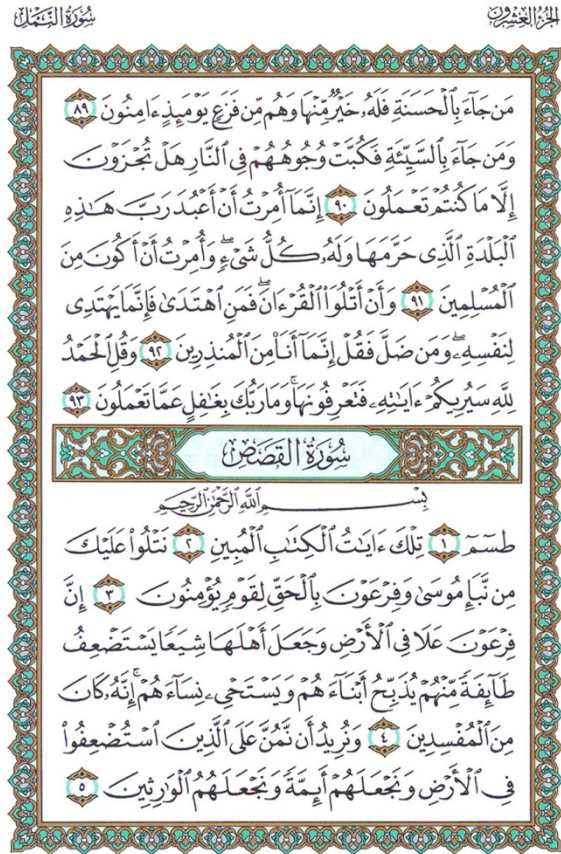 الجزء العشرون
سورة النمل
مَن جَآءَ بِٱلْحَسَنَةِ فَلَهُۥ خَيْرٌ مِّنْهَا وَهُم مِّن فَزَعٍ يَوْمَئِذٍ ءَامِنُونَ ٨٩
وَمَن جَآءَ بِٱلسَّيِّئَةِ فَكُبَّتْ وُجُوهُهُمْ فِى ٱلنَّارِ هَلْ تُجْزَوْنَ
إِلَّا مَا كُنتُمْ تَعْمَلُونَ ٩٠ إِنَّمَآ أُمِرْتُ أَنْ أَعْبُدَ رَبَّ هَٰذِهِ
ٱلْبَلْدَةِ ٱلَّذِى حَرَّمَهَا وَلَهُۥ كُلُّ شَىْءٍۖ وَأُمِرْتُ أَنْ أَكُونَ مِنَ
ٱلْمُسْلِمِينَ ٩١ وَأَنْ أَتْلُوَا۟ ٱلْقُرْءَانَۖ فَمَنِ ٱهْتَدَىٰ فَإِنَّمَا يَهْتَدِى
لِنَفْسِهِۦۖ وَمَن ضَلَّ فَقُلْ إِنَّمَآ أَنَا۠ مِنَ ٱلْمُنذِرِينَ ٩٢ وَقُلِ ٱلْحَمْدُ
لِلَّهِ سَيُرِيكُمْ ءَايَٰتِهِۦ فَتَعْرِفُونَهَاۚ وَمَا رَبُّكَ بِغَٰفِلٍ عَمَّا تَعْمَلُونَ ٩٣
سورة القصص
بِسْمِ ٱللَّهِ ٱلرَّحْمَٰنِ ٱلرَّحِيمِ
طسٓمٓ ١ تِلْكَ ءَايَٰتُ ٱلْكِتَٰبِ ٱلْمُبِينِ ٢ نَتْلُوا۟ عَلَيْكَ
مِن نَّبَإِ مُوسَىٰ وَفِرْعَوْنَ بِٱلْحَقِّ لِقَوْمٍ يُؤْمِنُونَ ٣ إِنَّ
فِرْعَوْنَ عَلَا فِى ٱلْأَرْضِ وَجَعَلَ أَهْلَهَا شِيَعًا يَسْتَضْعِفُ
طَآئِفَةً مِّنْهُمْ يُذَبِّحُ أَبْنَآءَهُمْ وَيَسْتَحْىِۦ نِسَآءَهُمْۚ إِنَّهُۥ كَانَ
مِنَ ٱلْمُفْسِدِينَ ٤ وَنُرِيدُ أَن نَّمُنَّ عَلَى ٱلَّذِينَ ٱسْتُضْعِفُوا۟
فِى ٱلْأَرْضِ وَنَجْعَلَهُمْ أَئِمَّةً وَنَجْعَلَهُمُ ٱلْوَٰرِثِينَ ٥